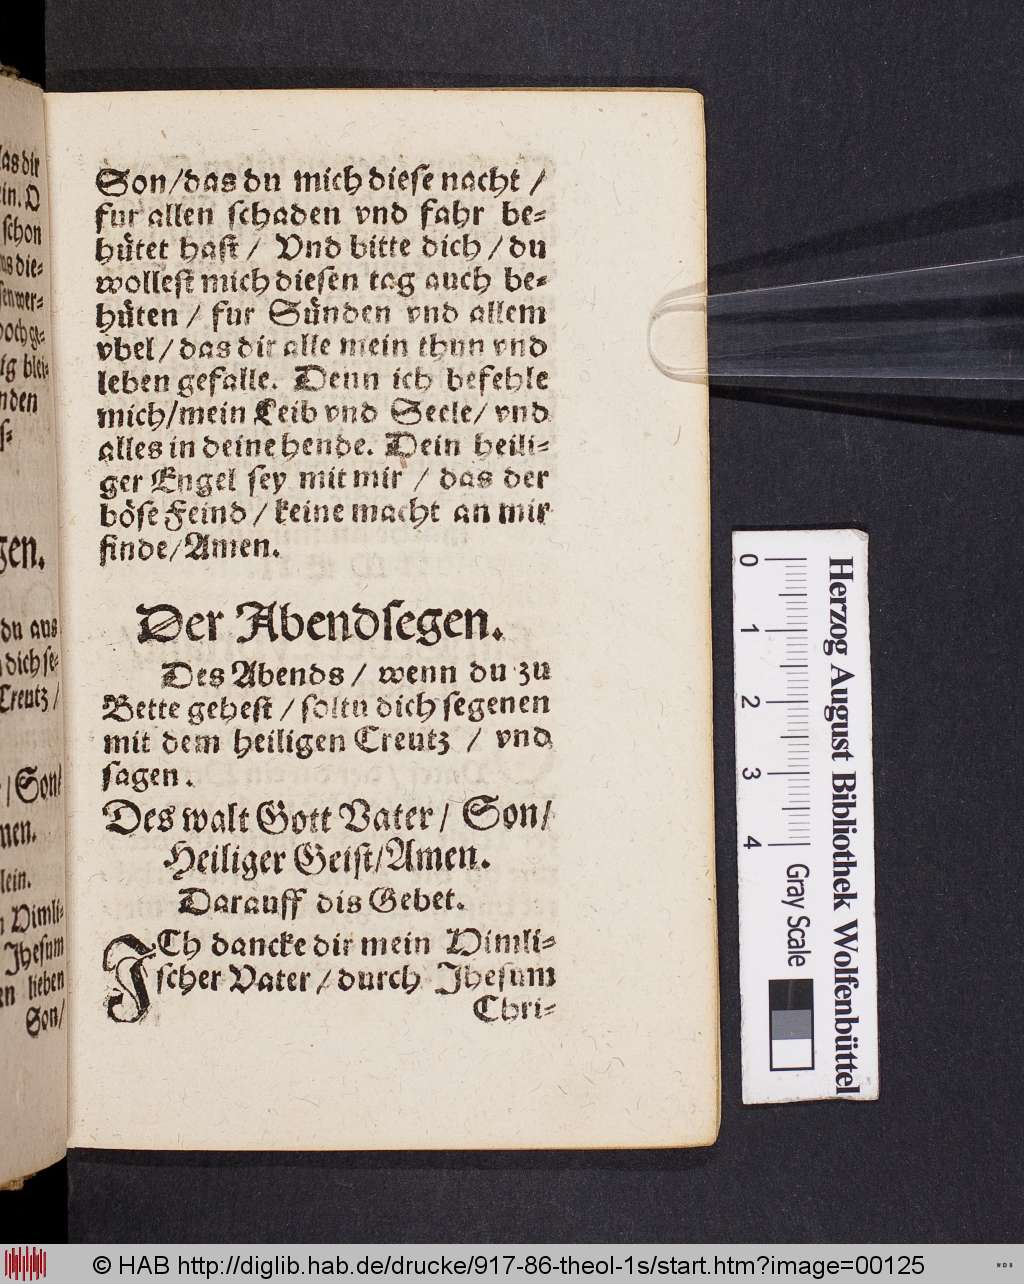 as dir
in. O
schon
us die-
sen wer-
doch ge-
ig blei-
nden
s-
gen.
du aus
dich se-
Creutz /
/ Son/
men.
lein.
Himli-
Jhesum
lieben
Son/
Son/das du mich diese nacht /
fur allen schaden vnd fahr be-
hütet hast / Vnd bitte dich / du
wollest mich diesen tag auch be-
hüten / fur Sünden vnd allem
vbel / das dir alle mein thun vnd
leben gefalle. Denn ich befehle
mich/mein Leib vnd Seele/ vnd
alles in deine hende. Dein heili-
ger Engel sey mit mir / das der
böse Feind / keine macht an mir
finde/Amen.
Der Abendsegen.
Des Abends / wenn du zu
Bette gehest / soltu dich segenen
mit dem heiligen Creutz / vnd
sagen.
Des walt Gott Vater / Son/
Heiliger Geist/Amen.
Darauff dis Gebet.
JCh dancke dir mein Himli-
scher Vater / durch Jhesum
Chri-
0 1 2 3 4
Gray Scale
Herzog August Bibliothek Wolfenbüttel
© HAB http://diglib.hab.de/drucke/917-86-theol-1s/start.htm?image=00125